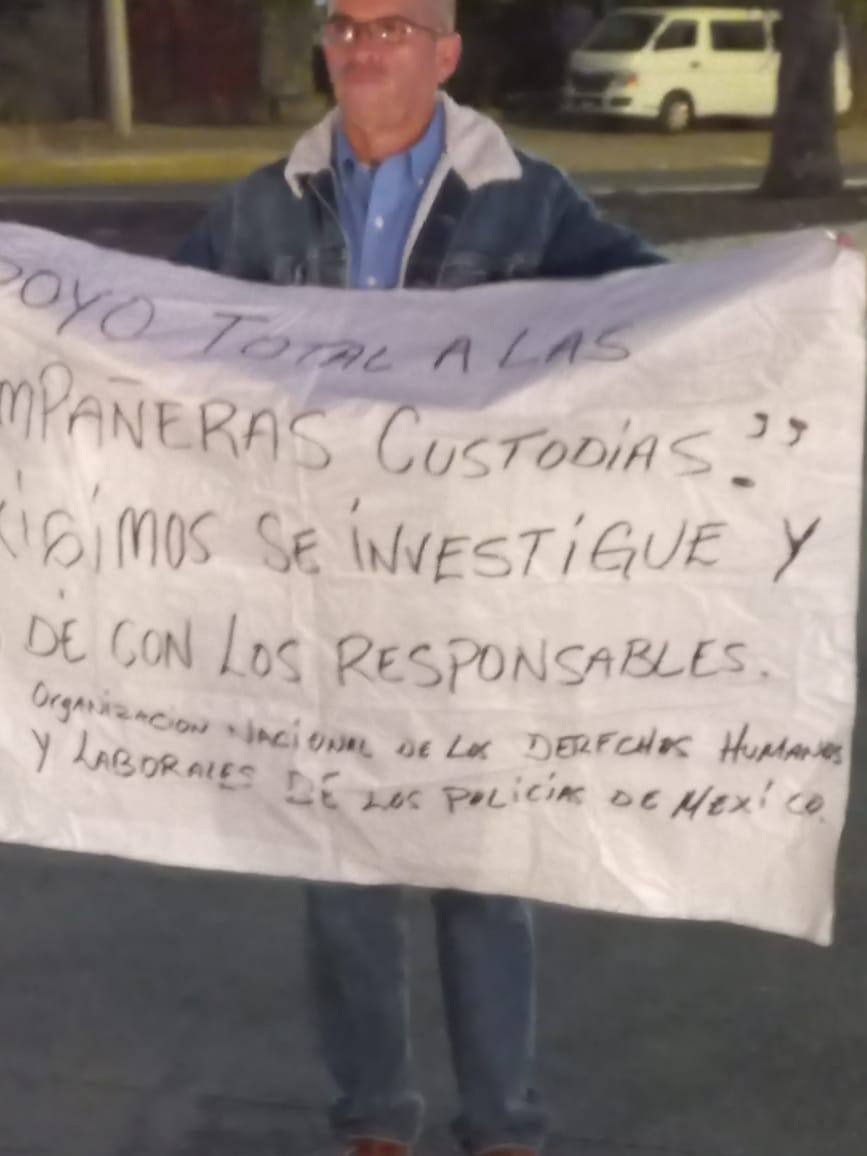 POYO TOTAL A LAS
MPAÑERAS CUSTODIAS."
XIGIMOS SE INVESTIGUE Y
DÉ CON LOS RESPONSABLES.
ORGANIZACION NACIONAL DE LOS DERECHOS HUMANOS
Y LABORALES DE LOS POLICÍAS DE MEXÍCO.